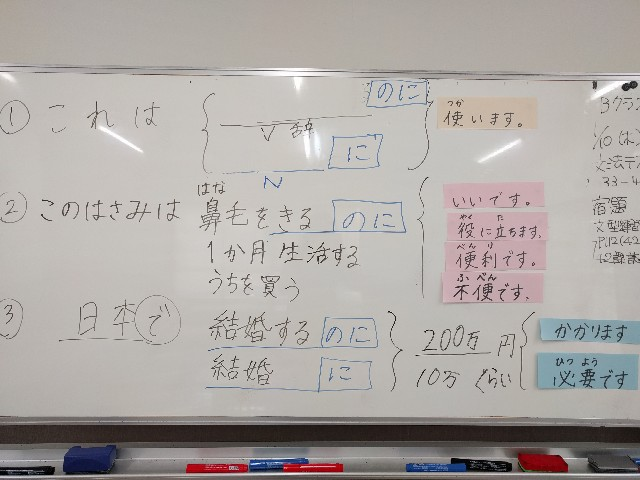 のに
① これは
V 辞
に
N
使います。
つか
② このはさみは
はな
鼻毛をきる のに
1か月 生活する
うちを買う
いいです。
役に立ちます。
やく た
便利です。
べん り
不便です。
ふ べん
③ 日本で
結婚する のに
結婚 に
200万 円
10万 くらい
かかります
ひつ よう
必要です
宿題